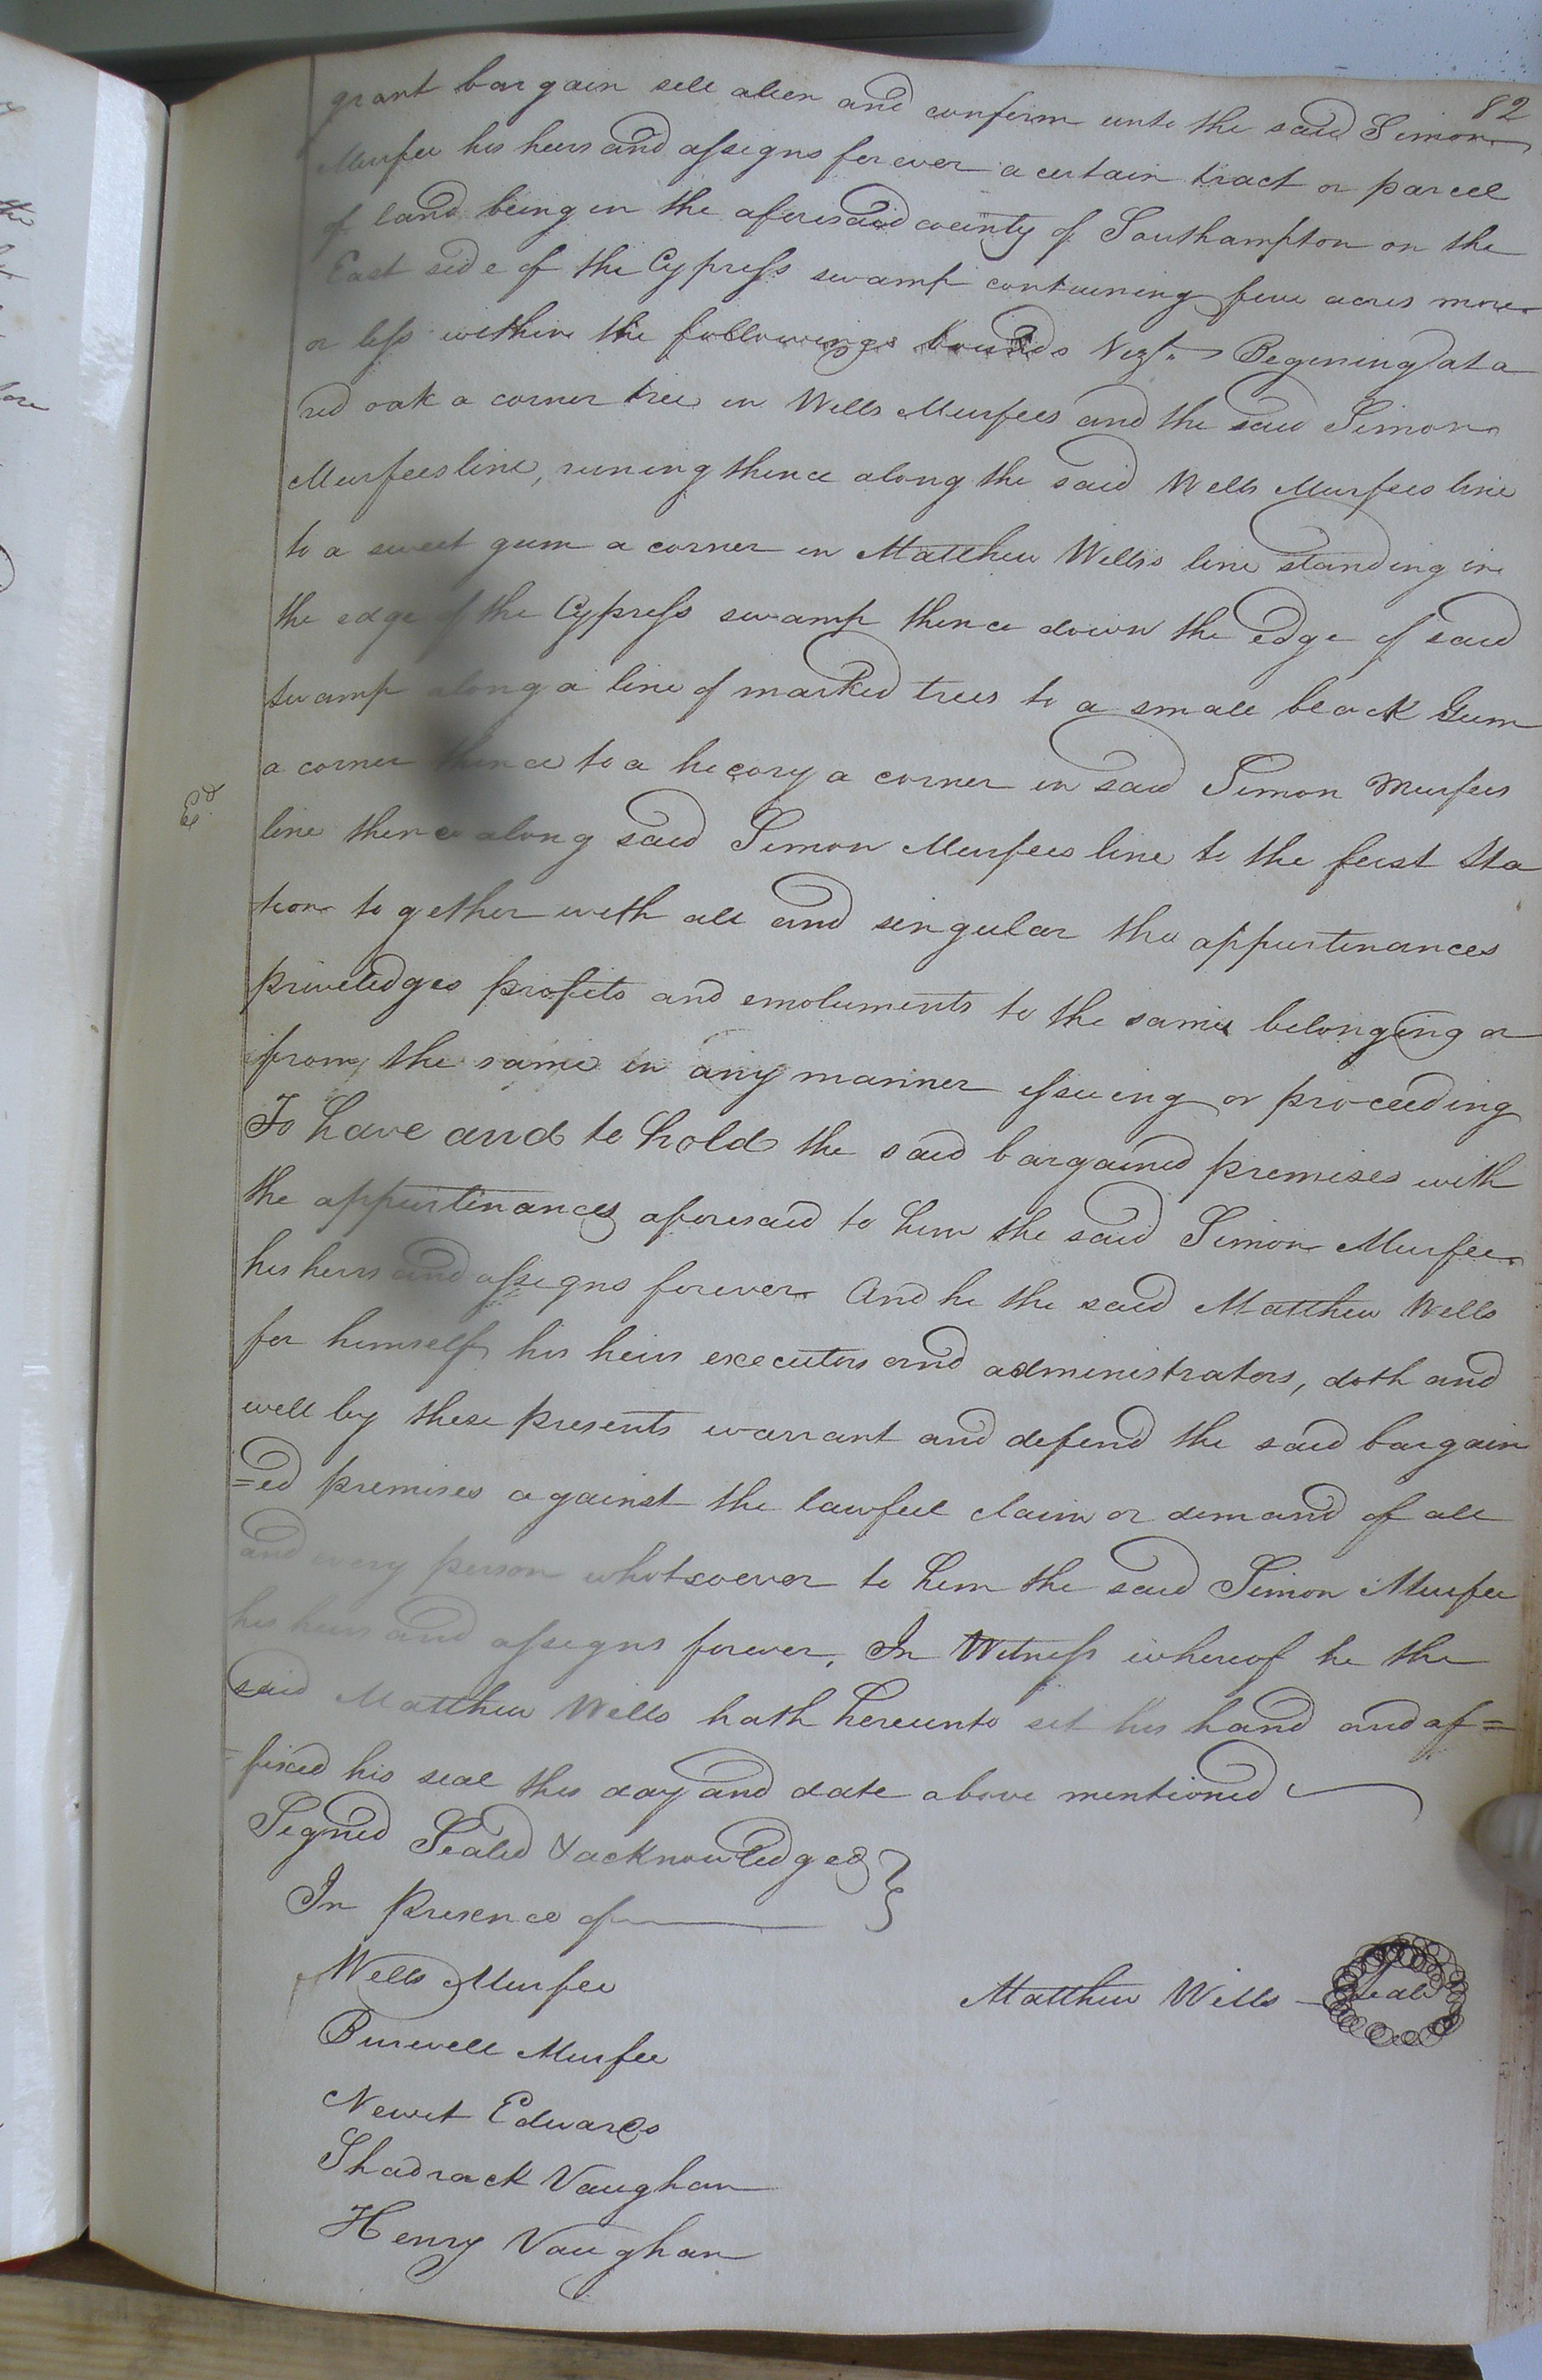 82
grant bargain sell alien and confirm unto the said Simon
Murfee his heirs and assigns forever a certain tract or parcel
of land being in the aforesaid county of Southampton on the
East side of the Cypress swamp containing five acres more
or less within the following bounds Vizt. Begining at a
red oak a corner tree in Wells Murfees and the said Simon
Murfees line, runing thence along the said Wells Murfees line
to a sweet gum a corner in Matthew Wells's line standing in
the edge of the Cypress swamp thence down the edge of said
swamp along a line of marked trees to a small black Gum
a corner thence to a hecory a corner in said Simon Murfees
Ed.
line thence along said Simon Murfees line to the first sta
tion together with all and singular the appurtinances
priveledges profits and emoluments to the same belonging or
from the same in any manner issuing or proceeding
To have and to hold the said bargained premises with
the appurtinances aforesaid to him the said Simon Murfee
his heirs and assigns forever And he the said Matthew Wells
for himself his heirs executors and administrators, doth and
well by these presents warrant and defend the said bargain
=ed premises against the lawfull claim or demand of all
and every person whotsoever to him the said Simon Murfee
his heirs and assigns forever. In Witness whereof he the
said Matthew Wells hath hereunto set his hand and af=
=fixed his seal this day and date above mentioned
Signed Sealed & acknowledged }
In presence of
Wells Murfee
Matthew Wells Seal
Burwell Murfee
Newit Edwards
Shadrack Vaughan
Henry Vaughan